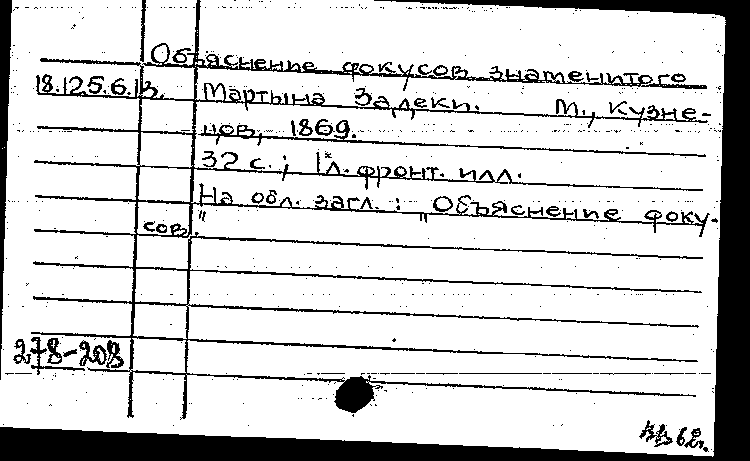 Объяснение фокусов знаменитого
18.125.6.13. Мартына Задеки. М., Кузне-
цов, 1869.
32 с.; 1 л. фронт. илл.
На обл. загл.: "Объяснение фоку-
сов".
278-208
62г.